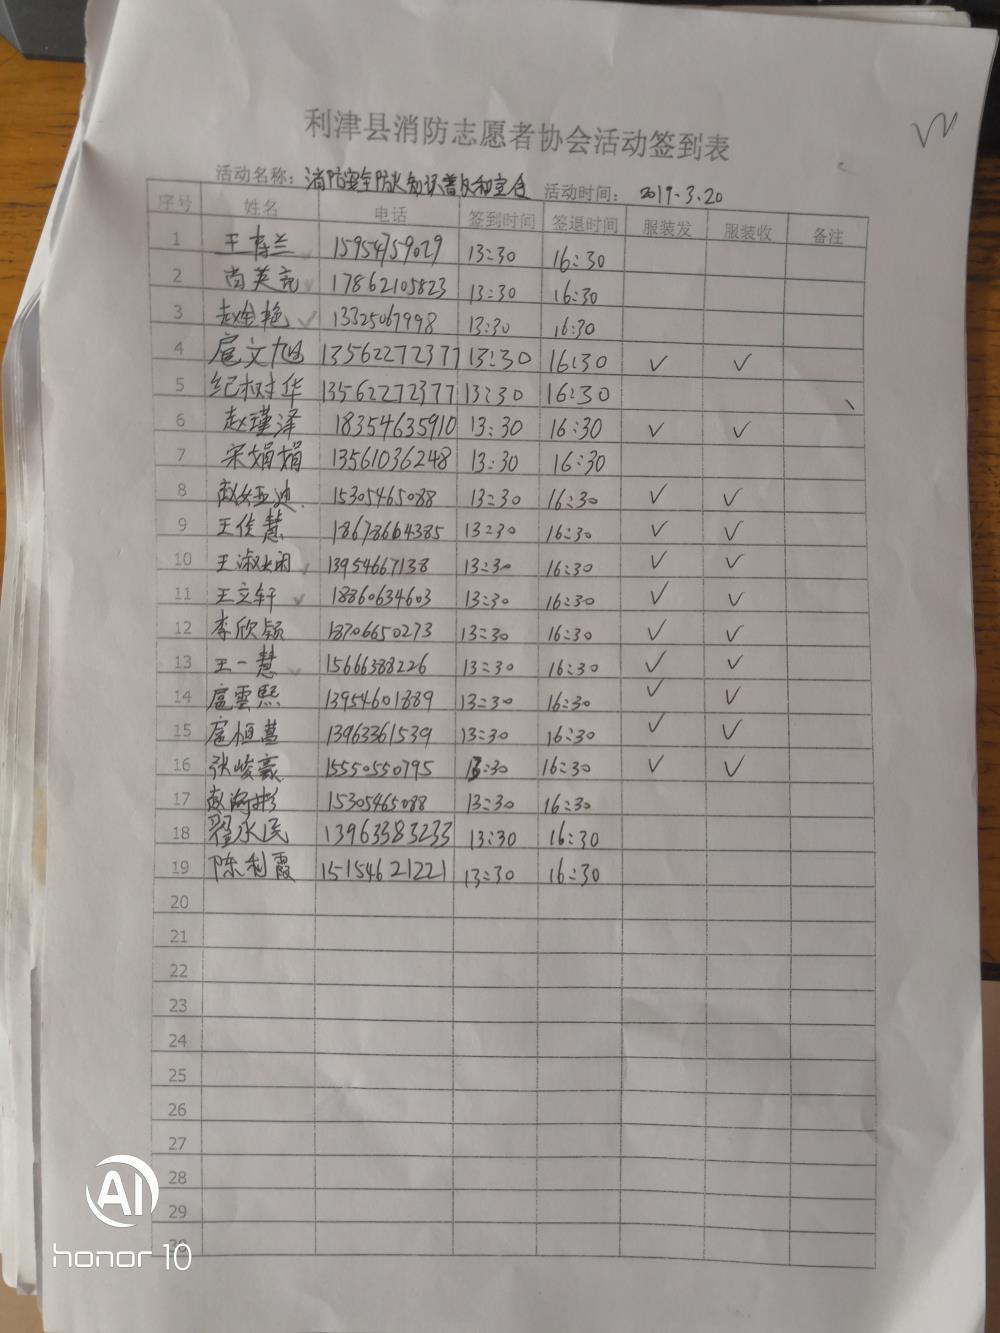 利津县消防志愿者协会活动签到表
活动名称：消防安全防火知识普及和宣传 活动时间： 2019.3.20
序号 姓名 电话 签到时间 签退时间 服装发 服装收 备注
1 王春兰 15954759029 13:30 16:30
2 尚英亮 17862105823 13:30 16:30
3 赵金艳 ✓ 13325067998 13:30 16:30
4 扈文旭 13562272377 13:30 16:30 ✓ ✓
5 纪树华 13562272377 13:30 16:30 、
6 赵瑾泽 18354635910 13:30 16:30 ✓ ✓
7 宋娟娟 13561036248 13:30 16:30
8 15305465088 13:30 16:30 ✓ ✓
9 王佳慧 18678664385 13:30 16:30 ✓ ✓
10 王淑娴 13954667138 13:30 16:30 ✓ ✓
11 王立轩 ✓ 18860634603 13:30 16:30 ✓ ✓
12 李欣颖 18706650273 13:30 16:30 ✓ ✓
13 王一慧 15666388226 13:30 16:30 ✓ ✓
14 扈雲熙 13954601889 13:30 16:30 ✓ ✓
15 扈恒菖 13963361539 13:30 16:30 ✓ ✓
16 张峻豪 15550550795 13:30 16:30 ✓ ✓
17 赵海彬 15305465088 13:30 16:30
18 翟永民 13963383233 13:30 16:30
19 陈利霞 15154621221 13:30 16:30
20
21
22
23
24
25
26
27
28
29
30
AI
honor 10